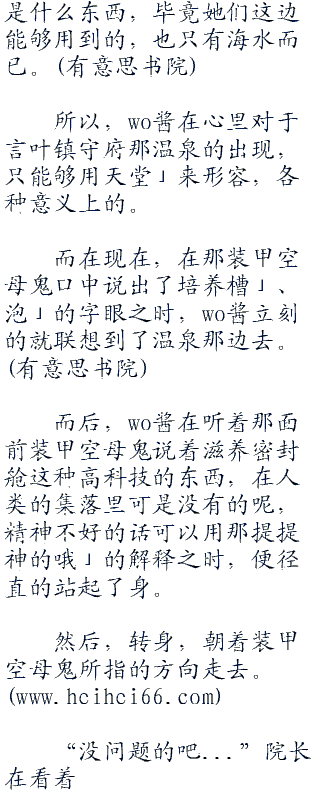 是什么东西，毕竟她们这边
能够用到的，也只有海水而
已。(有意思书院)
所以，wo酱在心里对于
言叶镇守府那温泉的出现，
只能够用天堂」来形容，各
种意义上的。
而在现在，在那装甲空
母鬼口中说出了培养槽」、
泡」的字眼之时，wo酱立刻
的就联想到了温泉那边去。
(有意思书院)
而后，wo酱在听着那面
前装甲空母鬼说着滋养密封
舱这种高科技的东西，在人
类的集落里可是没有的呢，
精神不好的话可以用那提提
神的哦」的解释之时，便径
直的站起了身。
然后，转身，朝着装甲
空母鬼所指的方向走去。
(www.hcihci66.com)
“没问题的吧...”院长
在看着